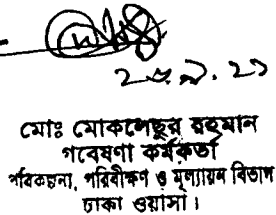 ২৮.৯.২১
মোঃ মোকলেছুর রহমান
গবেষণা কর্মকর্তা
পরিকল্পনা, পরিবীক্ষণ ও মূল্যায়ন বিভাগ
ঢাকা ওয়াসা।